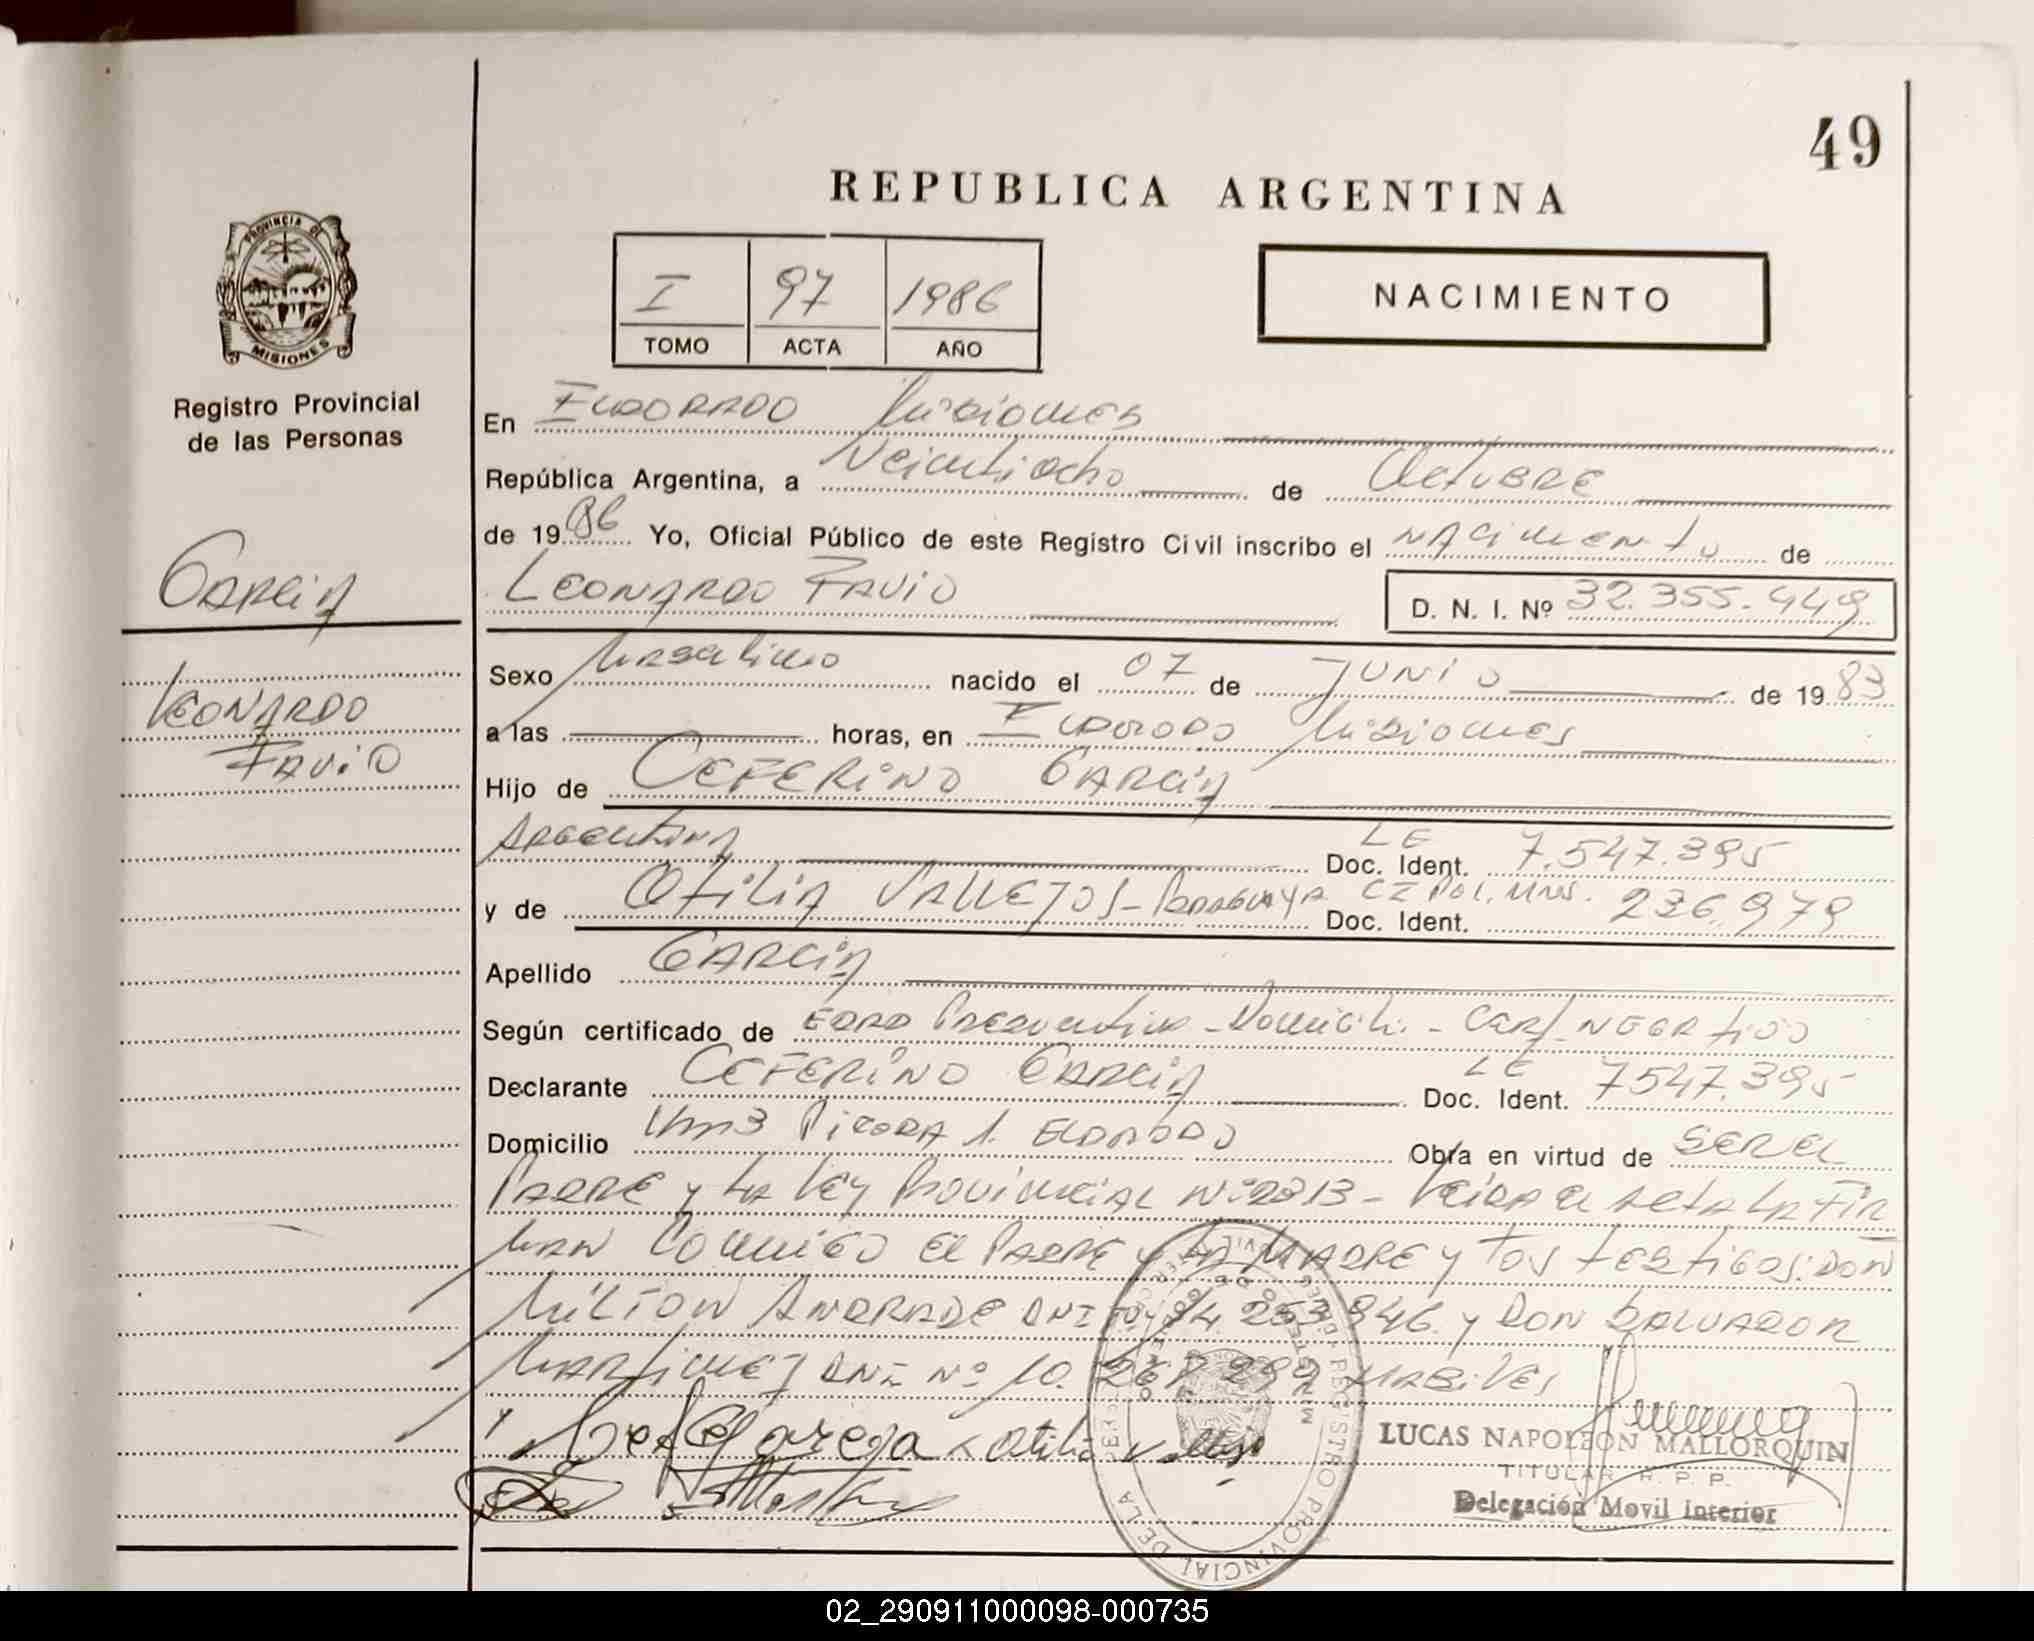 49
REPUBLICA ARGENTINA
PROVINCIA DE
MISIONES
I 97 1986
TOMO ACTA AÑO
NACIMIENTO
Registro Provincial
de las Personas
Garcia
Leonardo
Favio
En Eldorado Misiones
República Argentina, a Veintiocho de Octubre
de 1986 Yo, Oficial Público de este Registro Civil inscribo el nacimiento de
Leonardo Favio D. N. I. Nº 32.355.449
Sexo Masculino nacido el 07 de Junio de 1983
a las horas, en Eldorado Misiones
Hijo de Ceferino Garcia
Argentina LE Doc. Ident. 7.547.395
y de Otilia Vallejos - Paraguaya CI Pol. Mns. Doc. Ident. 236.979
Apellido Garcia
Según certificado de Edad Presuntiva - Domicili. - Cert. Negativo
Declarante Ceferino Garcia LE Doc. Ident. 7547.395
Domicilio Km3 Picada 1. Eldorado Obra en virtud de ser el
Padre y la Ley Provincial Nº 2313 - Leida el acta la fir
man conmigo el Padre y la Madre y los testigos: Don
Milton Andrade DNI Nº 14.253.946 y Don Salvador
Martinez DNI Nº 10. habiles
Otilia
LUCAS NAPOLEON MALLORQUIN
TITULAR R. P. P.
Delegación Movil Interior
02_290911000098-000735